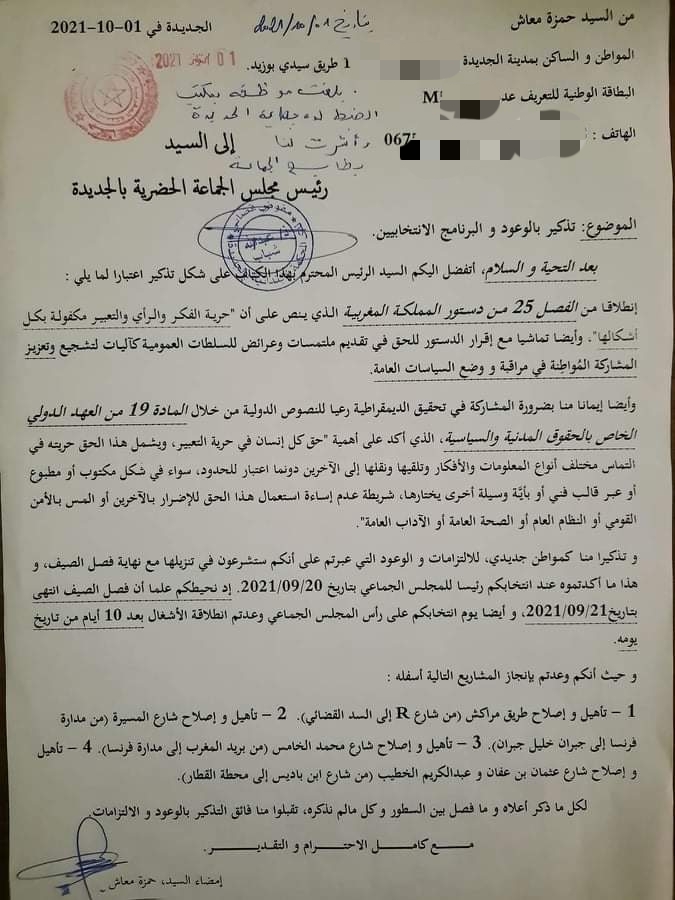 من السيد حمزة معاش
الجديدة في 01-10-2021
بتاريخ 2021/10/01
المواطن و الساكن بمدينة الجديدة
1 طريق سيدي بوزيد.
01 أكتوبر 2021
البطاقة الوطنية للتعريف عدد
M
بلغت موظفة بمكتب
الضبط لدى جماعة الجديدة
الهاتف :
067
وأشرت لنا
بطابع الجماعة
إلى السيد
رئيس مجلس الجماعة الحضرية بالجديدة
الموضوع: تذكير بالوعود و البرنامج الانتخابيين.
مفوض قضائي
شباب
بعد التحية و السلام، أتفضل اليكم السيد الرئيس المحترم بهذا الكتاب على شكل تذكير اعتبارا لما يلي :
إنطلاقا من الفصل 25 من دستور المملكة المغربية الذي ينص على أن "حرية الفكر والرأي والتعبير مكفولة بكل
أشكالها"، وأيضا تماشيا مع إقرار الدستور للحق في تقديم ملتمسات وعرائض للسلطات العمومية كآليات لتشجيع وتعزيز
المشاركة المُواطِنة في مراقبة و وضع السياسات العامة.
وأيضا إيمانا منا بضرورة المشاركة في تحقيق الديمقراطية رعيا للنصوص الدولية من خلال المادة 19 من العهد الدولي
الخاص بالحقوق المدنية والسياسية، الذي أكد على أهمية "حق كل إنسان في حرية التعبير، ويشمل هذا الحق حريته في
التماس مختلف أنواع المعلومات والأفكار وتلقيها ونقلها إلى الآخرين دونما اعتبار للحدود، سواء في شكل مكتوب أو مطبوع
أو عبر قالب فني أو بأيَّة وسيلة أخرى يختارها، شريطة عدم إساءة استعمال هذا الحق للإضرار بالآخرين أو المس بالأمن
القومي أو النظام العام أو الصحة العامة أو الآداب العامة".
و تذكيرا منا كمواطن جديدي، للالتزامات و الوعود التي عبرتم على أنكم ستشرعون في تنزيلها مع نهاية فصل الصيف، و
هذا ما أكدتموه عند انتخابكم رئيسا للمجلس الجماعي بتاريخ 2021/09/20. إد نحيطكم علما أن فصل الصيف انتهى
بتاريخ2021/09/21، و أيضا يوم انتخابكم على رأس المجلس الجماعي وعدتم انطلاقة الأشغال بعد 10 أيام من تاريخ
يومه.
و حيث أنكم وعدتم بإنجاز المشاريع التالية أسفله :
1 – تأهيل و إصلاح طريق مراكش (من شارع R إلى السد القضائي). 2 – تأهيل و إصلاح شارع المسيرة (من مدارة
فرنسا إلى جبران خليل جبران). 3 – تأهيل و إصلاح شارع محمد الخامس (من بريد المغرب إلى مدارة فرنسا). 4 – تأهيل
و إصلاح شارع عثمان بن عفان و عبدالكريم الخطيب (من شارع ابن باديس إلى محطة القطار).
لكل ما ذكر أعلاه و ما فصل بين السطور و كل مالم نذكره، تقبلوا منا فائق التذكير بالوعود و الالتزامات.
مـــع كامـــل الاحتـــرام و التقديـــر.
إمضاء السيد، حمزة معاش